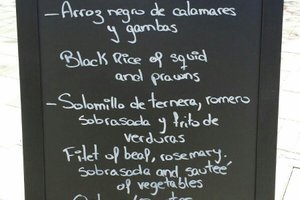 - Arroz negro de calamares
y gambas
Black Rice of squid
and prawns
- Solomillo de ternera, romero
sobrasada y frito de
verduras
Filet of beef, rosemary,
sobrasada and sauteé
of vegetables